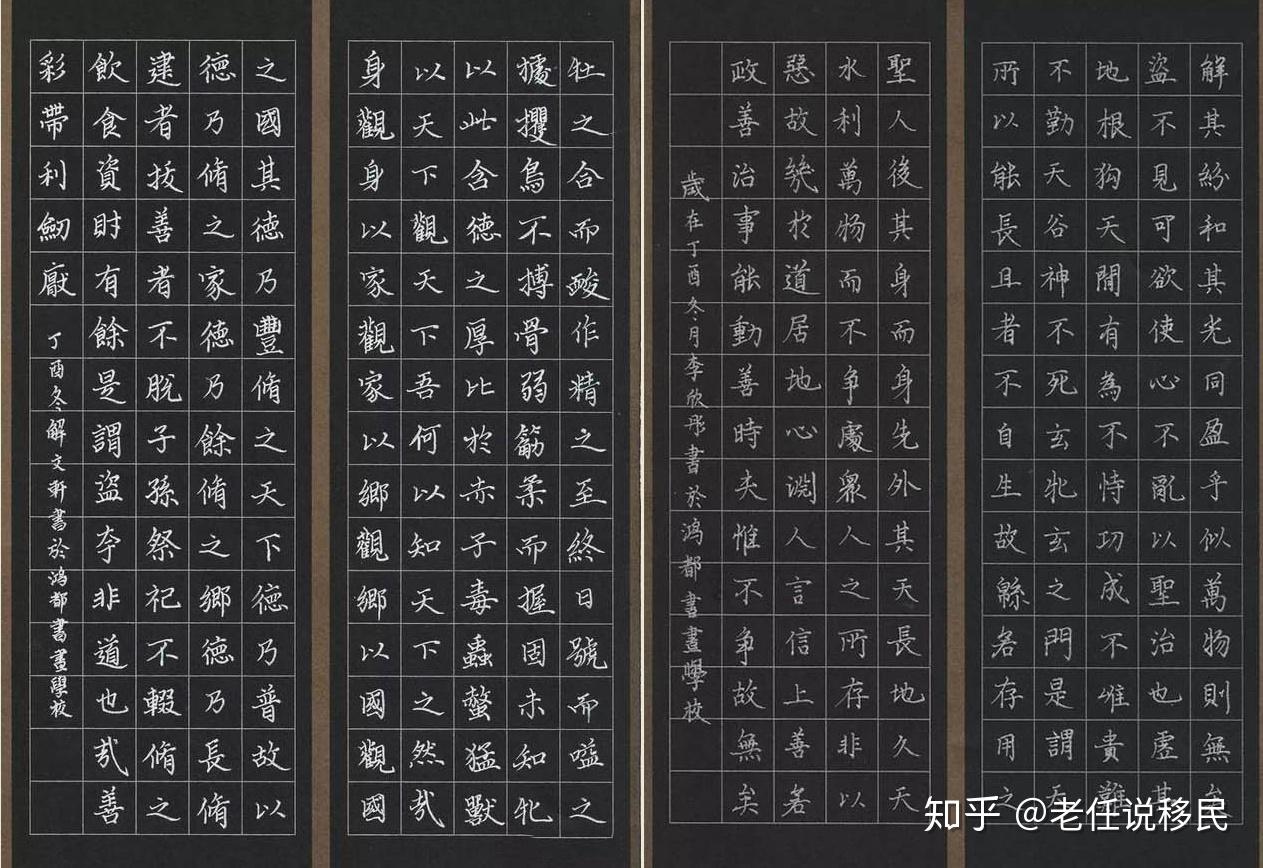 解其紛和其光同盈乎似萬物則無
盜不見可欲使心不亂以聖治也虛其
地根狗天間有為不恃功成不唯貴難
不勤天谷神不死玄牝玄之門是謂天
所以能長且者不自生故緜若存用之
聖人後其身而身先外其天長地久天
水利萬物而不争處衆人之所存非以
惡故幾於道居地心淵人言信上善若
政善治事能動善時夫惟不争故無矣
歲在丁酉冬月李欣彤書於鴻都書畫學校
牡之合而朘作精之至終日號而嗌之
據攫鳥不搏骨弱筋柔而握固未知牝
以此含德之厚比於赤子毒蟲螫猛獸
以天下觀天下吾何以知天下之然哉
身觀身以家觀家以鄉觀鄉以國觀國
之國其德乃豐脩之天下德乃普故以
德乃脩之家德乃餘脩之鄉德乃長脩
建者拔善者不脫子孫祭祀不輟脩之
飲食資財有餘是謂盜夸非道也哉善
彩帶利劒厭
丁酉冬解文軒書於鴻都書畫學校
知乎 @老任说移民